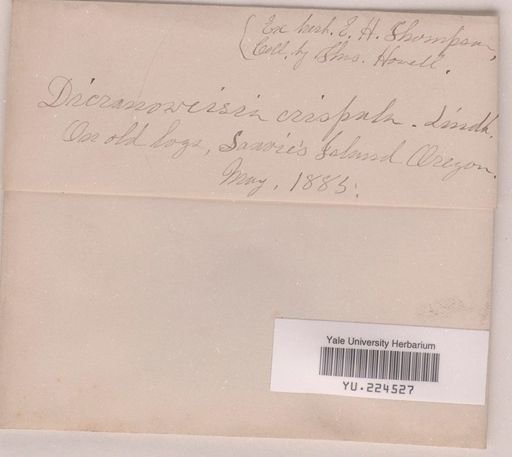 (Ex herb. E. H. Thompson,
Coll. by Thos. Howell.
Dicranoweisia crispula - Lindb.
On old logs, Sauvie's Island Oregon.
May, 1885.
Yale University Herbarium
YU.224527